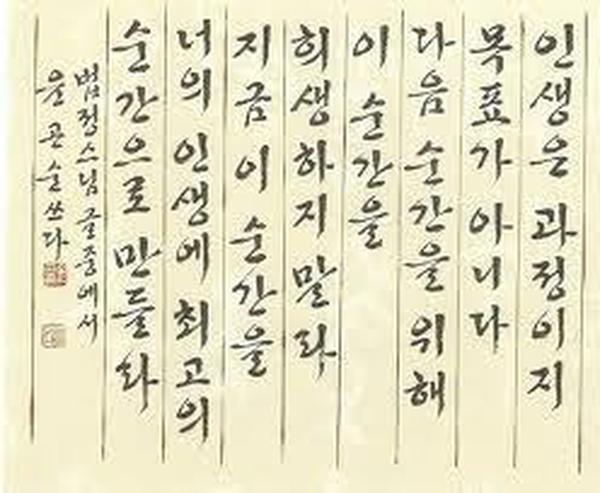 인생은 과정이지
목표가 아니다
다음 순간을 위해
이 순간을
희생하지 말라
지금 이 순간을
너의 인생에 최고의
순간으로 만들라
법정스님 글중에서
윤관순 쓰다